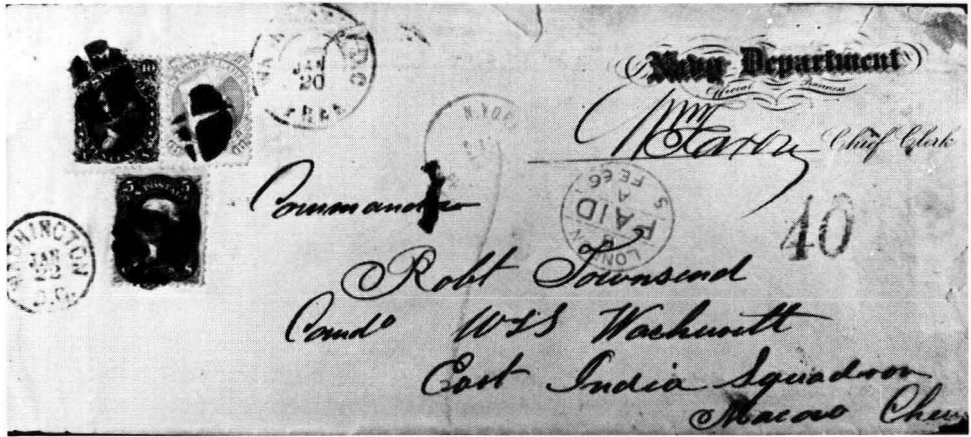 Navy Department
Official Business
Wm Faxon Chief Clerk
JAN
20
FREE
N.YORK
LONDON
PAID
5 FE 66
40
5 5
WASHINGTON
JAN
D.C.
Commander
Robt Townsend
Comdg USS Wachusett
East India Squadron
Macao China